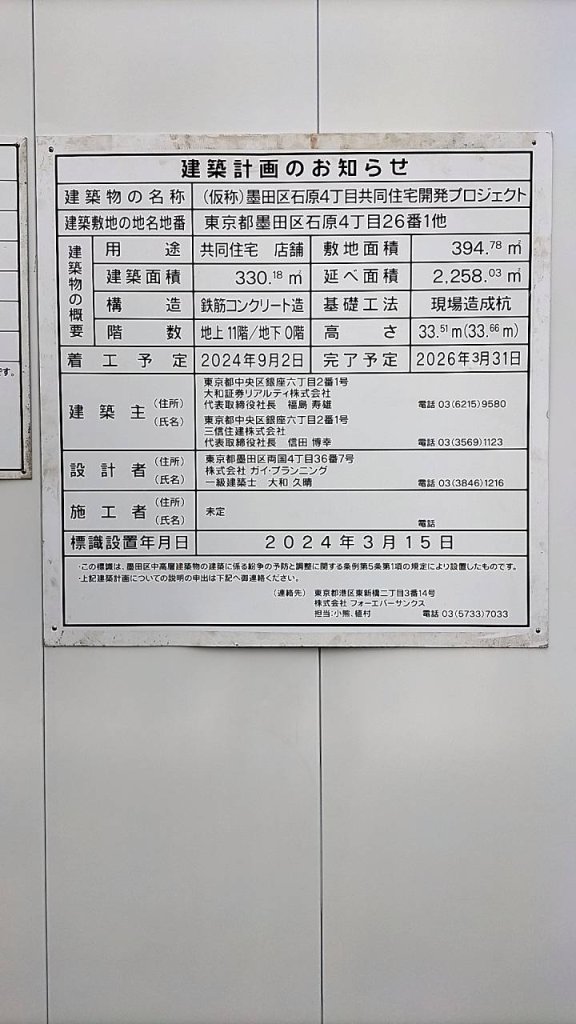 建築計画のお知らせ
建築物の名称 (仮称)墨田区石原4丁目共同住宅開発プロジェクト
建築敷地の地名地番 東京都墨田区石原4丁目26番1他
建築物の概要
用途 共同住宅 店舗 敷地面積 394.78㎡
建築面積 330.18㎡ 延べ面積 2,258.03㎡
構造 鉄筋コンクリート造 基礎工法 現場造成杭
階数 地上11階/地下0階 高さ 33.51m(33.66m)
着工予定 2024年9月2日 完了予定 2026年3月31日
建築主 (住所) (氏名)
東京都中央区銀座六丁目2番1号
大和証券リアルティ株式会社
代表取締役社長 福島 寿雄 電話 03(6215)9580
東京都中央区銀座六丁目2番1号
三信住建株式会社
代表取締役社長 信田 博幸 電話 03(3569)1123
設計者 (住所) (氏名)
東京都墨田区両国4丁目36番7号
株式会社 ガイ・プランニング
一級建築士 大和 久晴 電話 03(3846)1216
施工者 (住所) (氏名)
未定
電話
標識設置年月日 2024年3月15日
・この標識は、墨田区中高層建築物の建築に係る紛争の予防と調整に関する条例第5条第1項の規定により設置したものです。
・上記建築計画についての説明の申出は下記へ御連絡ください。
(連絡先) 東京都港区東新橋二丁目3番14号
株式会社 フォーエバーサンクス
担当:小熊、植村 電話 03(5733)7033
です。